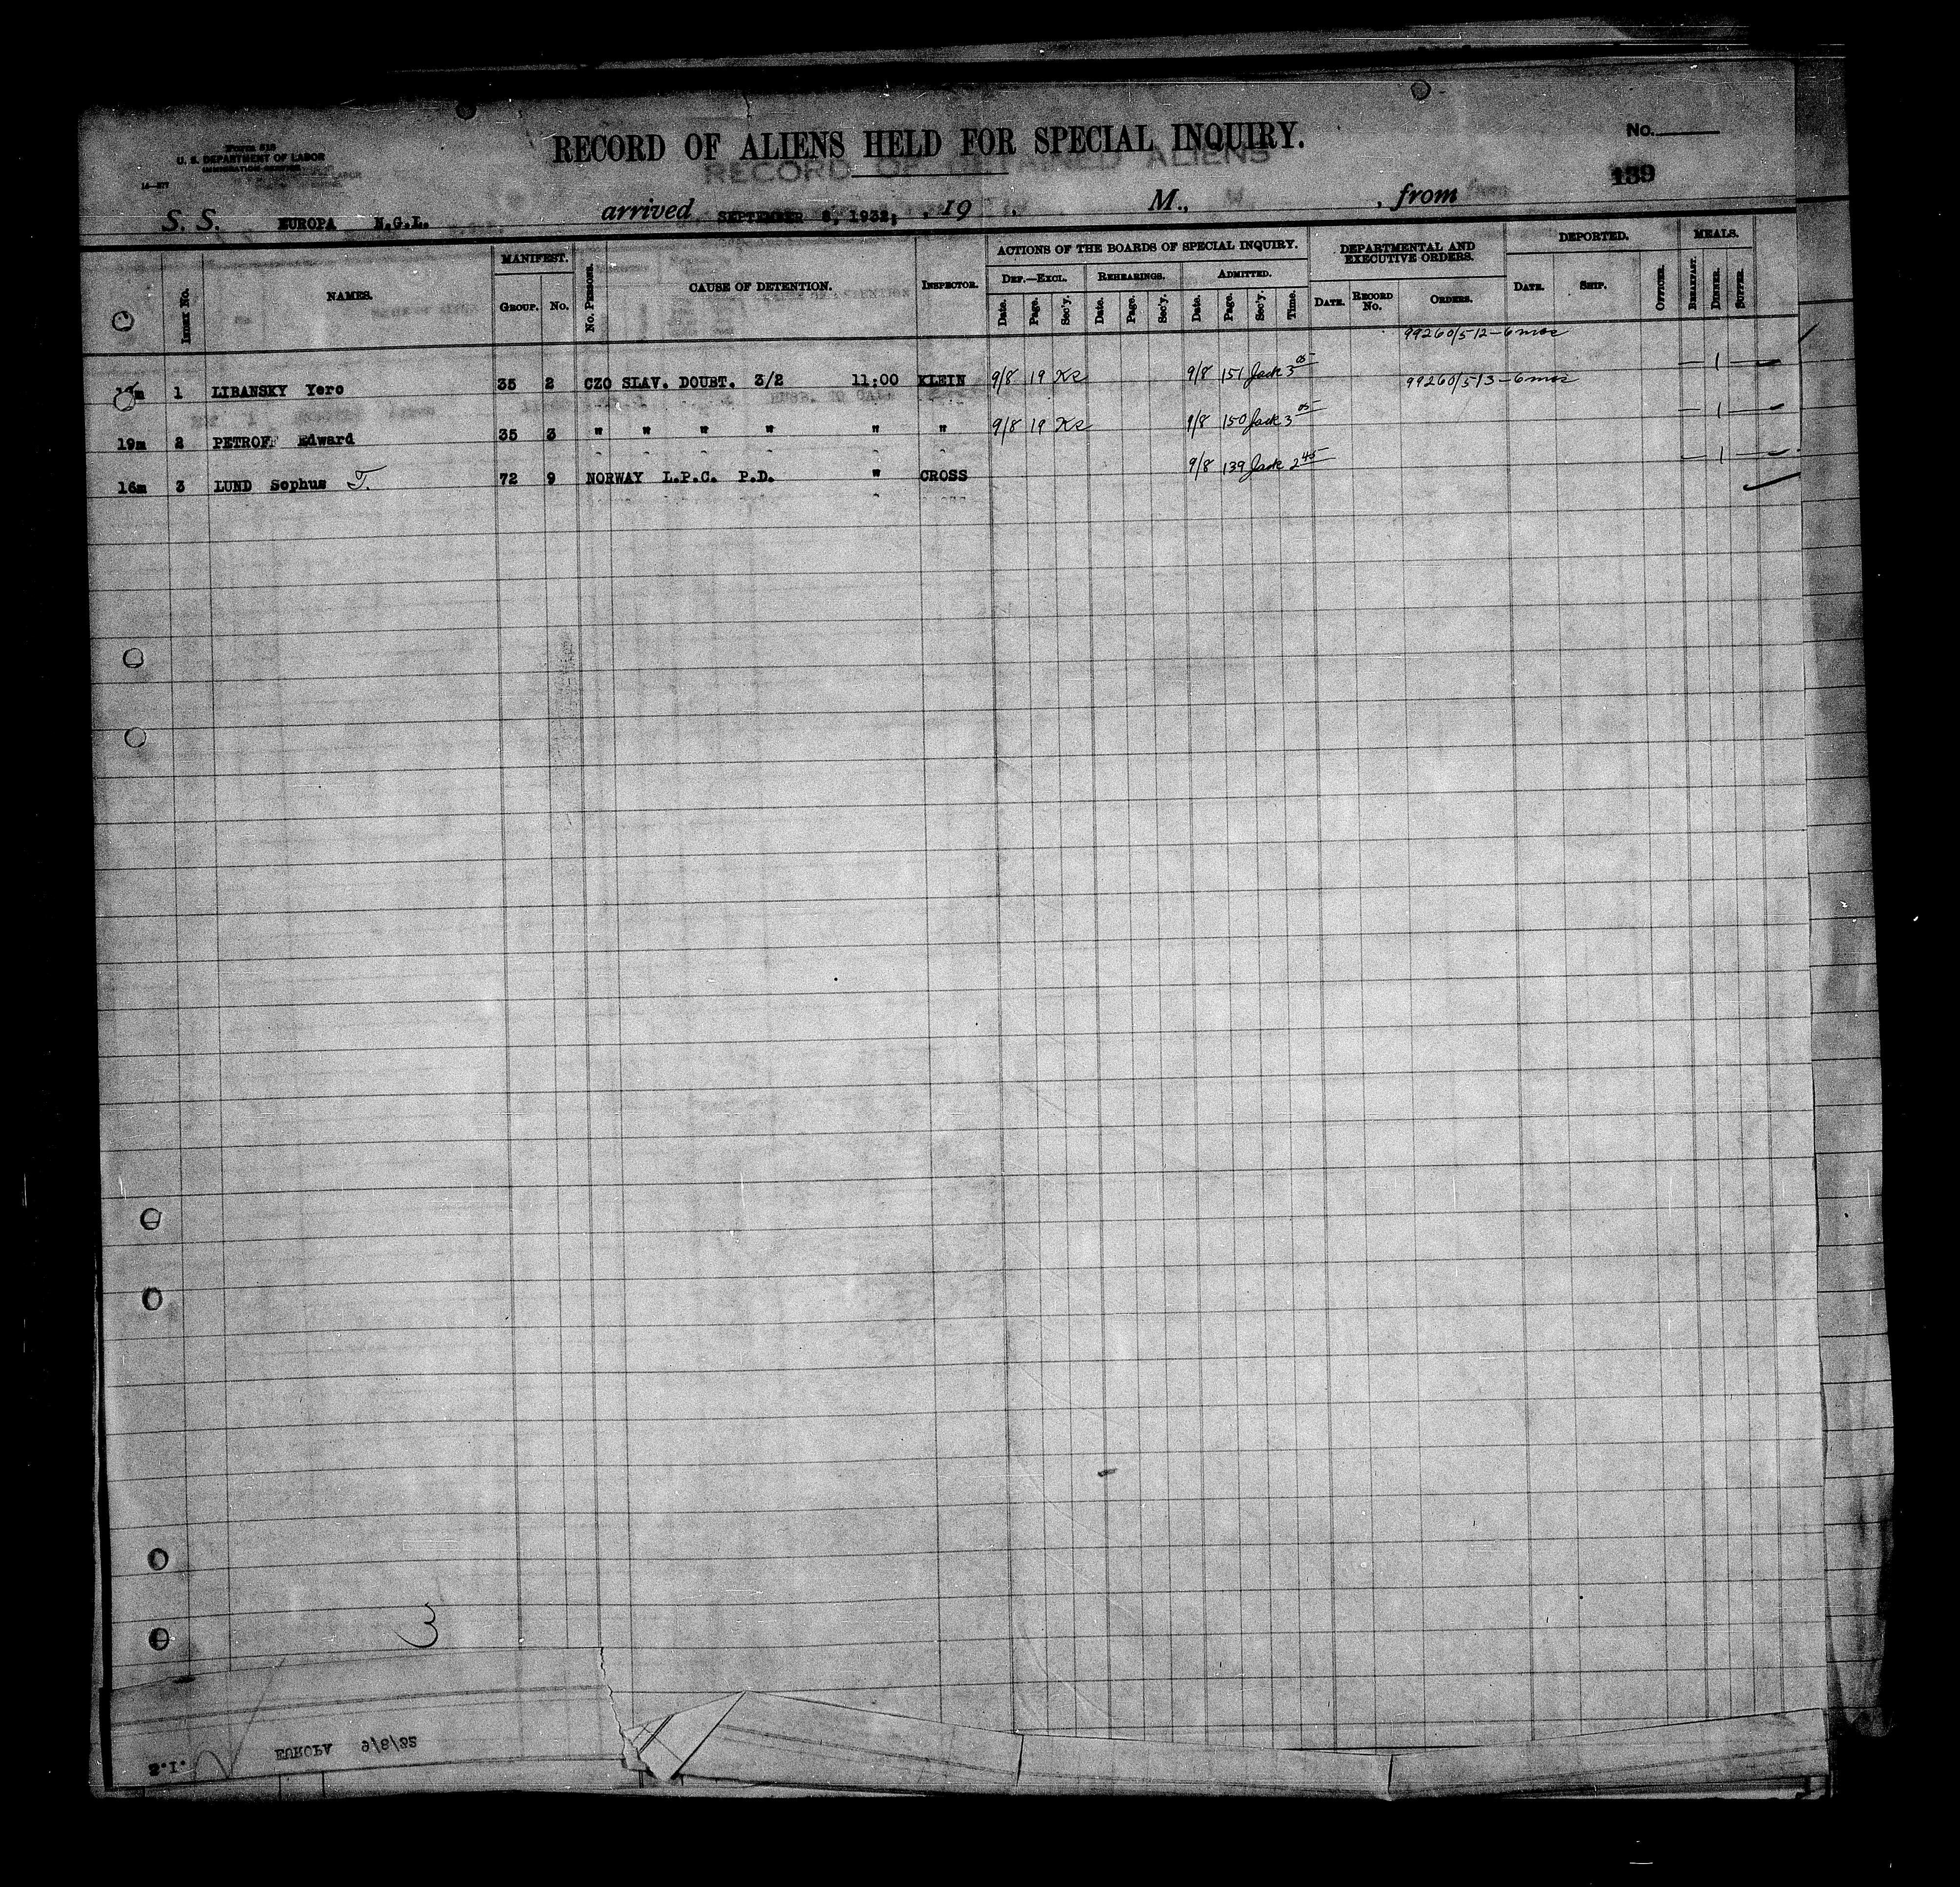 Form 518
U. S. DEPARTMENT OF LABOR
IMMIGRATION SERVICE
RECORD OF ALIENS HELD FOR SPECIAL INQUIRY.
No.
139
S. S. EUROPA N.G.L. arrived SEPTEMBER 8, 1932, , 19 . M., , from
INDEX No. NAMES. MANIFEST. GROUP. No. No. PERSONS. CAUSE OF DETENTION. INSPECTOR. ACTIONS OF THE BOARDS OF SPECIAL INQUIRY. DEPARTMENTAL AND EXECUTIVE ORDERS. DEPORTED. MEALS.
DEF.—EXCL. REHEARINGS. ADMITTED.
Date. Page. Sec'y. Date. Page. Sec'y. Date. Page. Sec'y. Time. DATE. RECORD No. ORDERS. DATE. SHIP. OFFICER. BREAKFAST. DINNER. SUPPER.
99260/512-6 mos
1 LIBANSKY Yero 35 2 CZO SLAV. DOUBT. 3/2 11:00 KLEIN 9/8 19 9/8 151 Jack 3 05 — 1 —
99260/513-6 mos
19m 2 PETROFF Edward 35 3 " " " " " " 9/8 19 9/8 150 Jack 3 05 — 1 —
16m 3 LUND Sophus T. 72 9 NORWAY L.P.C. P.D. " CROSS 9/8 139 Jack 2 45 — 1 —
3
S.I. EUROPA 9/8/32